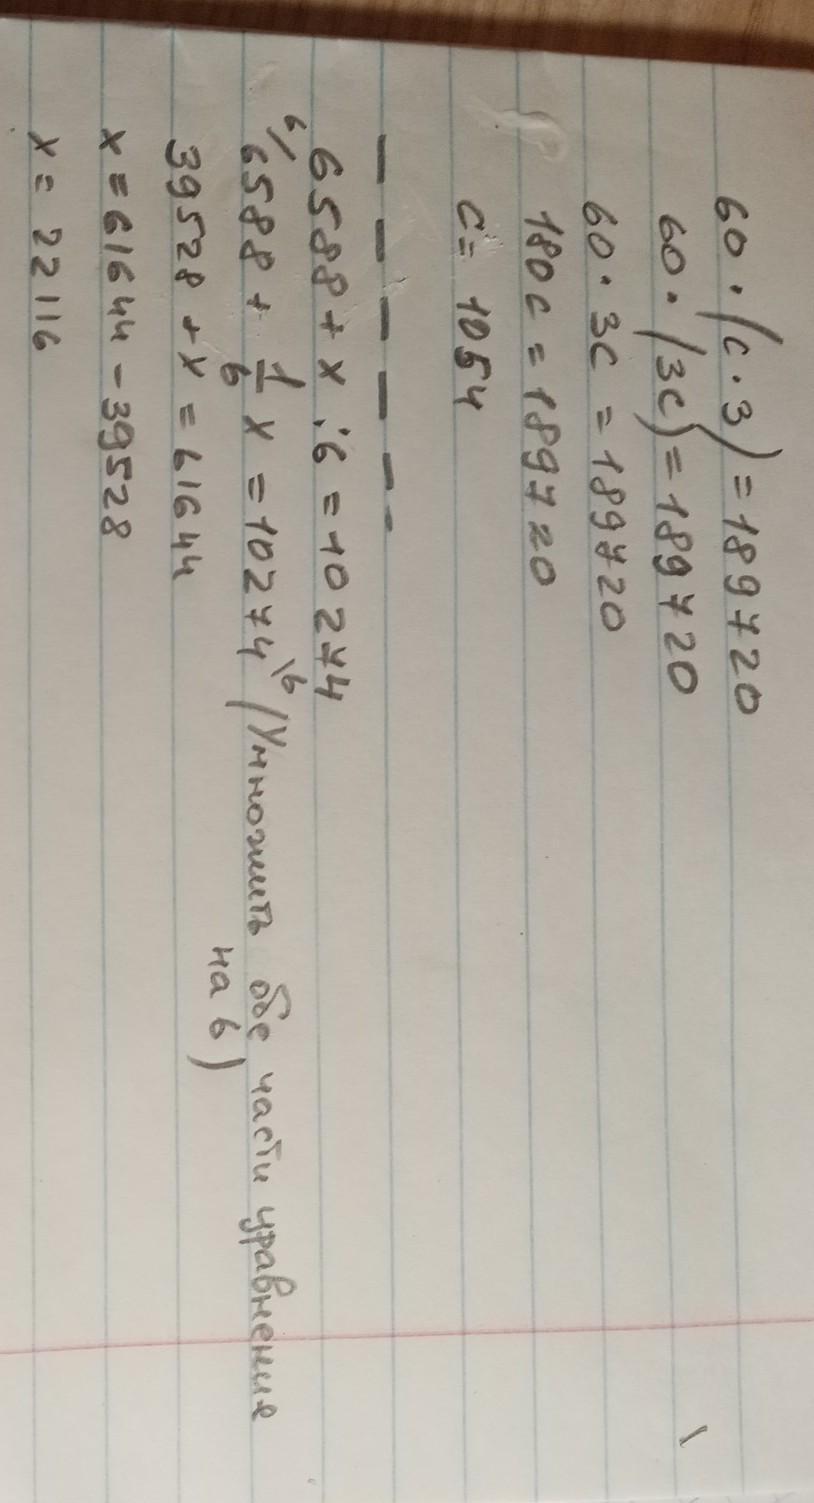 60 · (c · 3) = 189720
60 · (3c) = 189720
60 · 3c = 189720
180c = 189720
c = 1054
6588 + x : 6 = 10274
6/ 6588 + 1/6 x = 10274 \6 (Умножить обе части уравнения
на 6)
39528 + x = 61644
x = 61644 - 39528
x = 22116